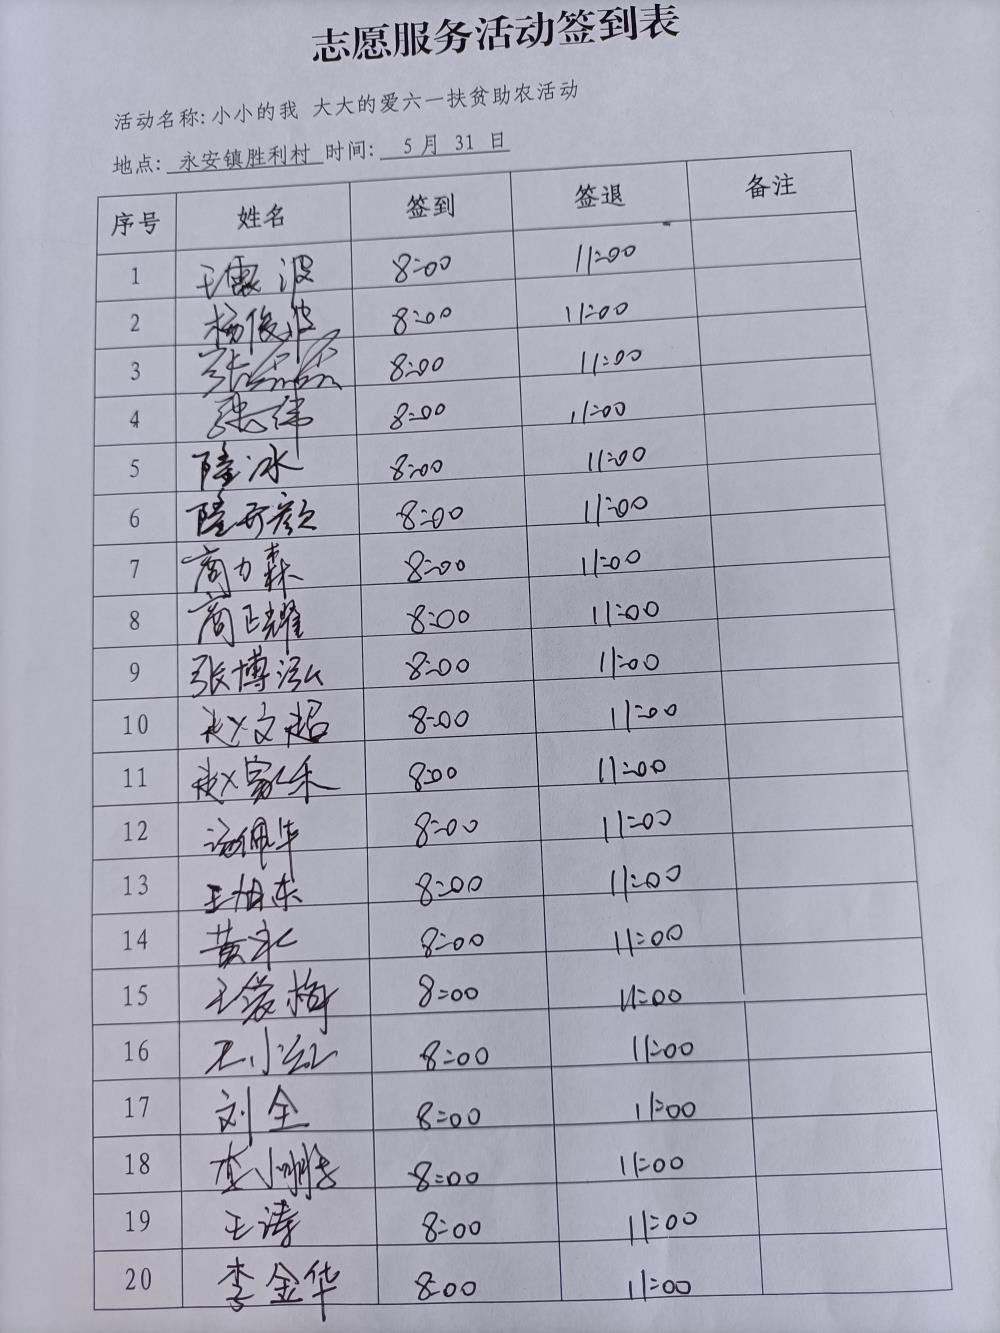 志愿服务活动签到表
活动名称:小小的我 大大的爱六一扶贫助农活动
地点: 永安镇胜利村 时间: 5 月 31 日
序号 姓名 签到 签退 备注
1 王震波 8:00 11:00
2 杨俊波 8:00 11:00
3 张磊磊 8:00 11:00
4 张伟 8:00 11:00
5 隆冰 8:00 11:00
6 隆开颜 8:00 11:00
7 商力森 8:00 11:00
8 商正耀 8:00 11:00
9 张博泓 8:00 11:00
10 赵文超 8:00 11:00
11 赵家乐 8:00 11:00
12 汤佩华 8:00 11:00
13 王旭东 8:00 11:00
14 黄永 8:00 11:00
15 王爱梅 8:00 11:00
16 小红 8:00 11:00
17 刘全 8:00 11:00
18 李小 8:00 11:00
19 王涛 8:00 11:00
20 李金华 8:00 11:00